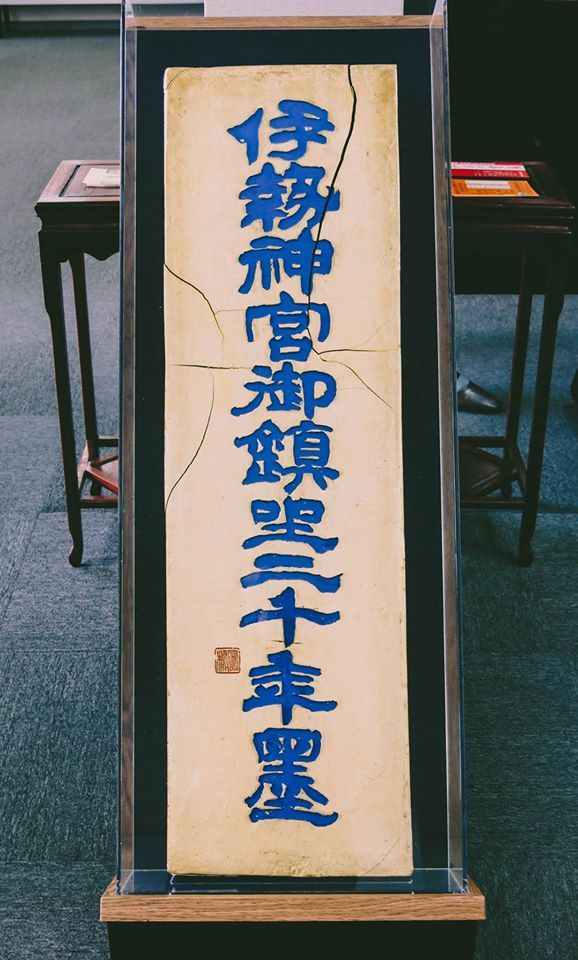 伊勢神宮御鎮坐二千年墨